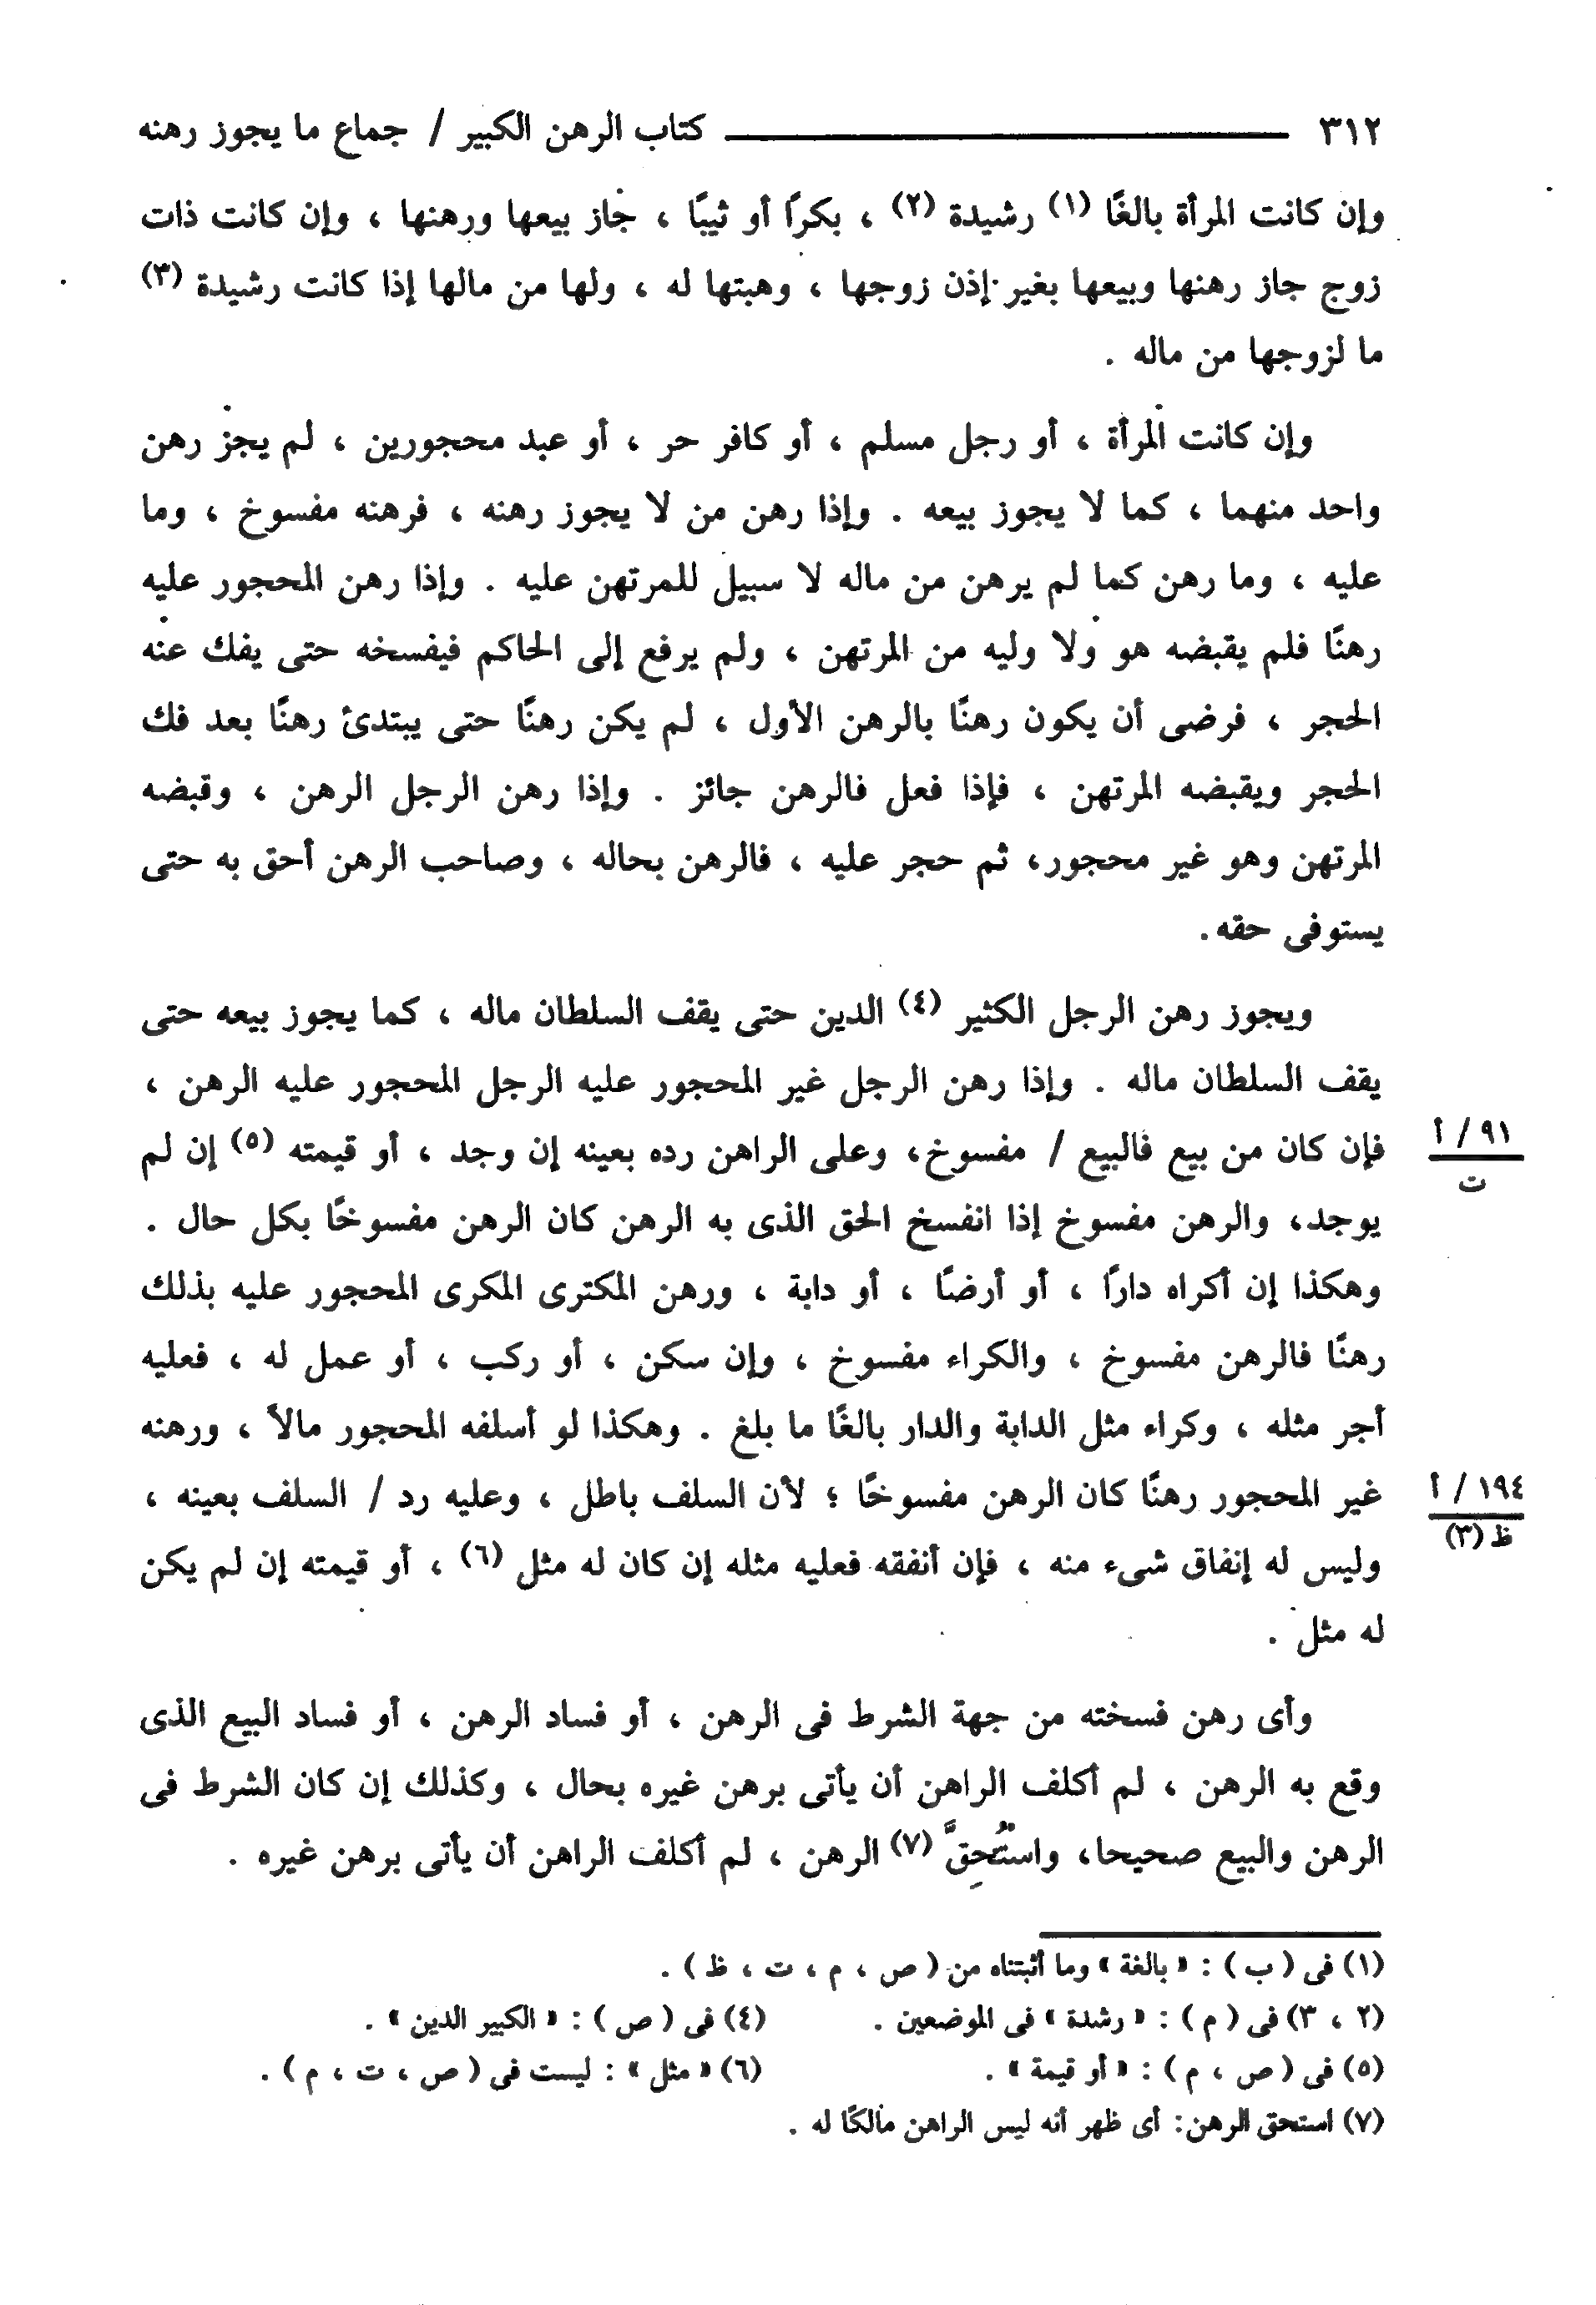 ٣١٢ كتاب الرهن الكبير / جماع ما يجوز رهنه
وإن كانت المرأة بالغًا (١) رشيدة (٢) ، بكرًا أو ثيبًا ، جاز بيعها ورهنها ، وإن كانت ذات
زوج جاز رهنها وبيعها بغير إذن زوجها ، وهبتها له ، ولها من مالها إذا كانت رشيدة (٣)
ما لزوجها من ماله .
وإن كانت المرأة ، أو رجل مسلم ، أو كافر حر ، أو عبد محجورين ، لم يجز رهن
واحد منهما ، كما لا يجوز بيعه . وإذا رهن من لا يجوز رهنه ، فرهنه مفسوخ ، وما
عليه ، وما رهن كما لم يرهن من ماله لا سبيل للمرتهن عليه . وإذا رهن المحجور عليه
رهنًا فلم يقبضه هو ولا وليه من المرتهن ، ولم يرفع إلى الحاكم فيفسخه حتى يفك عنه
الحجر ، فرضى أن يكون رهنًا بالرهن الأول ، لم يكن رهنًا حتى يبتدئ رهنًا بعد فك
الحجر ويقبضه المرتهن ، فإذا فعل فالرهن جائز . وإذا رهن الرجل الرهن ، وقبضه
المرتهن وهو غير محجور، ثم حجر عليه ، فالرهن بحاله ، وصاحب الرهن أحق به حتى
يستوفى حقه.
ويجوز رهن الرجل الكثير (٤) الدين حتى يقف السلطان ماله ، كما يجوز بيعه حتى
يقف السلطان ماله . وإذا رهن الرجل غير المحجور عليه الرجل المحجور عليه الرهن ،
فإن كان من بيع فالبيع / مفسوخ، وعلى الراهن رده بعينه إن وجد ، أو قيمته (٥) إن لم
٩١ / أ
ت
يوجد، والرهن مفسوخ إذا انفسخ الحق الذى به الرهن كان الرهن مفسوخًا بكل حال .
وهكذا إن أكراه دارًا ، أو أرضًا ، أو دابة ، ورهن المكترى المكرى المحجور عليه بذلك
رهنًا فالرهن مفسوخ ، والكراء مفسوخ ، وإن سكن ، أو ركب ، أو عمل له ، فعليه
أجر مثله ، وكراء مثل الدابة والدار بالغًا ما بلغ . وهكذا لو أسلفه المحجور مالاً ، ورهنه
غير المحجور رهنًا كان الرهن مفسوخًا ؛ لأن السلف باطل ، وعليه رد / السلف بعينه ،
١٩٤ / أ
ظ (٣)
وليس له إنفاق شىء منه ، فإن أنفقه فعليه مثله إن كان له مثل (٦) ، أو قيمته إن لم يكن
له مثل .
وأى رهن فسخته من جهة الشرط فى الرهن ، أو فساد الرهن ، أو فساد البيع الذى
وقع به الرهن ، لم أكلف الراهن أن يأتى برهن غيره بحال ، وكذلك إن كان الشرط فى
الرهن والبيع صحيحا، واستُحِقَّ (٧) الرهن ، لم أكلف الراهن أن يأتى برهن غيره .
(١) فى ( ب ) : « بالغة » وما أثبتناه من ( ص ، م ، ت ، ظ ) .
(٢ ، ٣) فى ( م ) : « رشدة » فى الموضعين .
(٤) فى ( ص ) : « الكبير الدين » .
(٥) فى ( ص ، م ) : « أو قيمة » .
(٦) « مثل » : ليست فى ( ص ، ت ، م ) .
(٧) استحق الرهن: أى ظهر أنه ليس الراهن مالكًا له .